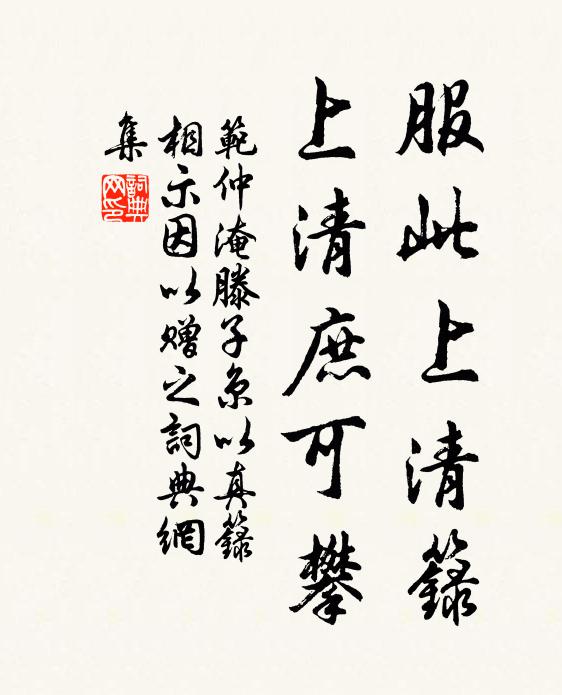 服此上清籙
上清庶可攀
範仲淹滕子京以真籙
相示因以贈之詞典網
集
詞典
网印